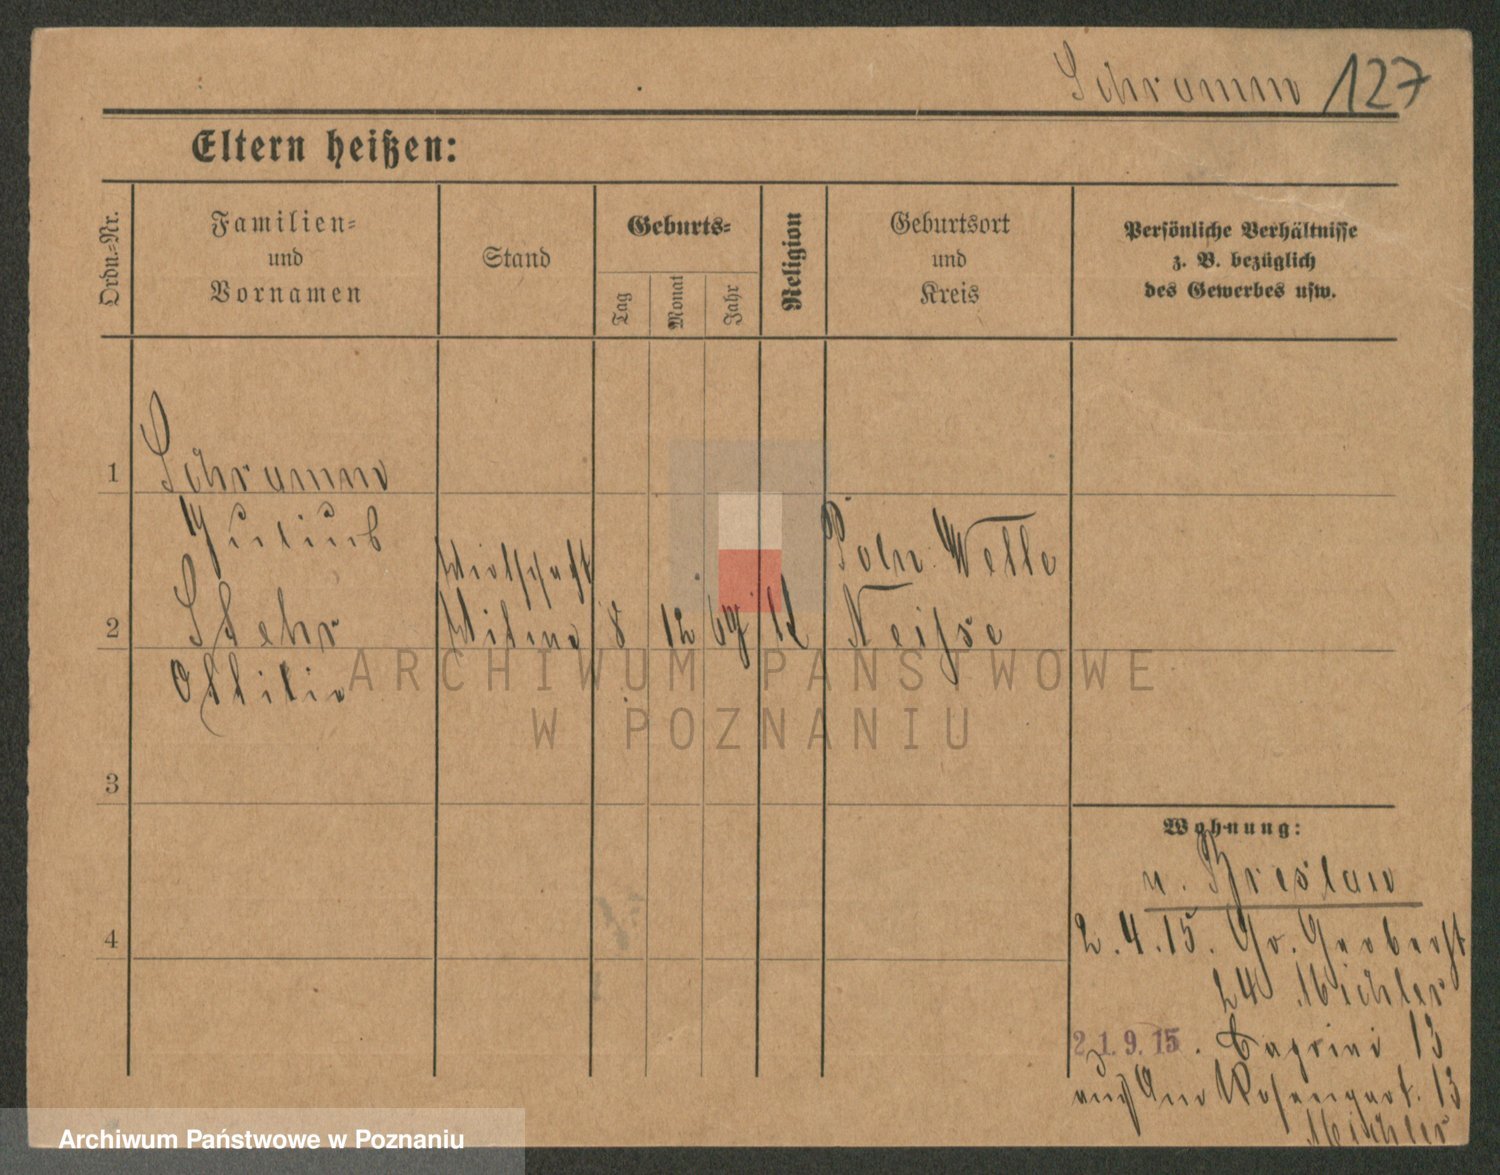 Schramm 127
Eltern heißen:
Ordn.-Nr.
Familien-
und
Vornamen
Stand
Geburts-
Tag
Monat
Jahr
Religion
Geburtsort
und
Kreis
Persönliche Verhältnisse
z. B. bezüglich
des Gewerbes usw.
1
Schramm
Julius
2
Stehr
Ottilie
8
12
Poln. Wette
Neisse
3
4
Wohnung:
n. Breslau
2.4.15. Gr. Gerberst
24 Michler
21.9.15. Caprivi 13
Am Rosengart. 13
Michler
ARCHIWUM PAŃSTWOWE
W POZNANIU
Archiwum Państwowe w Poznaniu